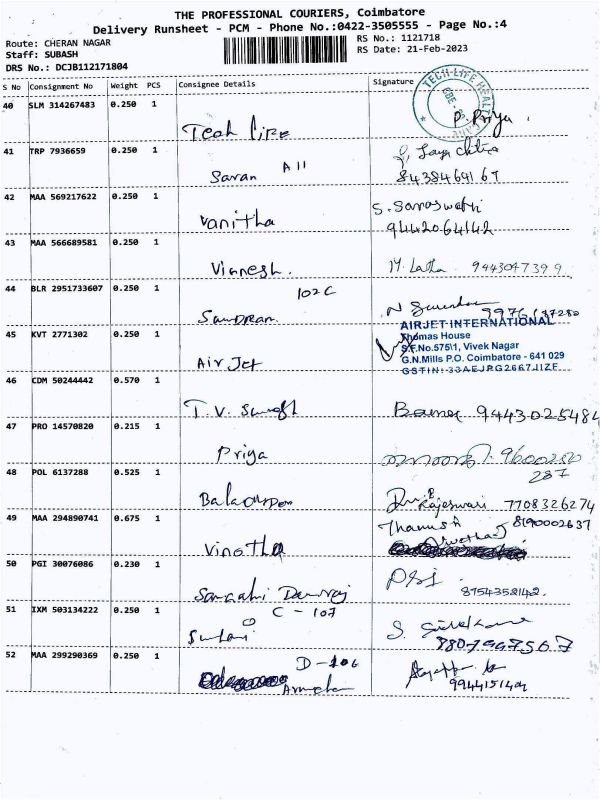 THE PROFESSIONAL COURIERS, Coimbatore
Delivery Runsheet - PCM - Phone No.:0422-3505555 - Page No.:4
Route: CHERAN NAGAR
Staff: SUBASH
DRS No.: DCJB112171804
RS No.: 1121718
RS Date: 21-Feb-2023
S No Consignment No Weight PCS Consignee Details Signature
TECH-LIFE HEAL
40 SLM 314267483 0.250 1
Tech Life P. Priya
41 TRP 7936659 0.250 1
Saran A11 8438464167
42 MAA 569217622 0.250 1
Vanitha S. Saraswathi
9442064142
43 MAA 566689581 0.250 1
Vignesh. M. Latha 9443047399
44 BLR 2951733607 0.250 1
102C
45 KVT 2771302 0.250 1
Air Jet
AIRJET INTERNATIONAL
Thomas House
S.F.No.575\1, Vivek Nagar
G.N.Mills P.O. Coimbatore - 641 029
GSTIN:-33AEJPG2667J1ZE
46 CDM 50244442 0.570 1
T.V. 9443025484
47 PRO 14570820 0.215 1
Priya 9600250
287
48 POL 6137288 0.525 1
Rajeswari 7708326274
49 MAA 294890741 0.675 1
Vinotha Thanush 8190002637
50 PGI 30076086 0.230 1
51 IXM 503134222 0.250 1
C - 107
S.
52 MAA 299290369 0.250 1
D-106
9944151404